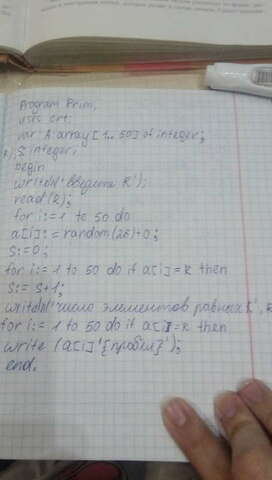 Program Prim;
uses crt;
var A: array [1.. 50] of integer;
S: integer;
begin
writeln('введите k');
read(k);
for i:=1 to 50 do
a[i]:=random(26)+0;
S:=0;
for i:=1 to 50 do if a[i]=k then
S:=S+1;
writeln('число элементов равных k',
for i:=1 to 50 do if a[i]=k then
write (a[i]'{пробел}');
end.